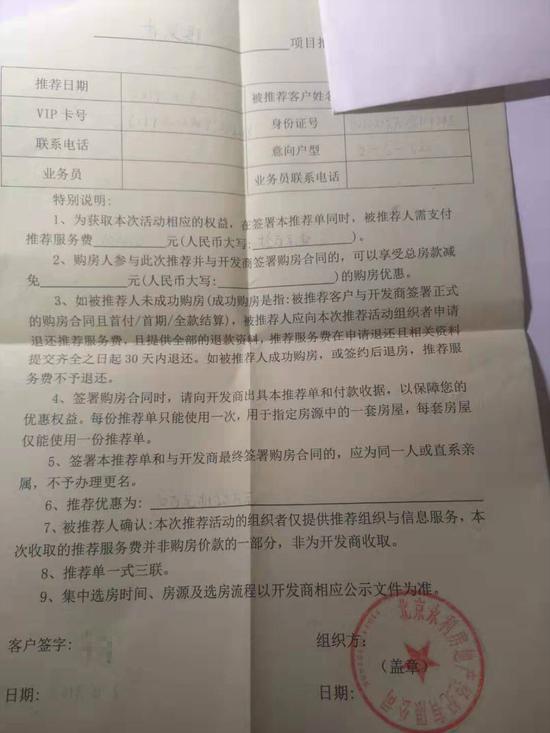 项目推
推荐日期
被推荐客户姓名
VIP 卡号
身份证号
联系电话
意向户型
业务员
业务员联系电话
特别说明:
1、为获取本次活动相应的权益，在签署本推荐单同时，被推荐人需支付
推荐服务费 元(人民币大写: )。
2、购房人参与此次推荐并与开发商签署购房合同的，可以享受总房款减
免 元(人民币大写: )的购房优惠。
3、如被推荐人未成功购房(成功购房是指:被推荐客户与开发商签署正式
的购房合同且首付/首期/全款结算)，被推荐人应向本次推荐活动组织者申请
退还推荐服务费，且提供全部的退款资料，推荐服务费在申请退还且相关资料
提交齐全之日起 30 天内退还。如被推荐人成功购房，或签约后退房，推荐服
务费不予退还。
4、签署购房合同时，请向开发商出具本推荐单和付款收据，以保障您的
优惠权益。每份推荐单只能使用一次，用于指定房源中的一套房屋，每套房屋
仅能使用一份推荐单。
5、签署本推荐单和与开发商最终签署购房合同的，应为同一人或直系亲
属，不予办理更名。
6、推荐优惠为:
7、被推荐人确认:本次推荐活动的组织者仅提供推荐组织与信息服务，本
次收取的推荐服务费并非购房价款的一部分，非为开发商收取。
8、推荐单一式三联。
9、集中选房时间、房源及选房流程以开发商相应公示文件为准。
客户签字:
组织方:
(盖章)
日期:
日期:
北京永利房地产经纪有限公司